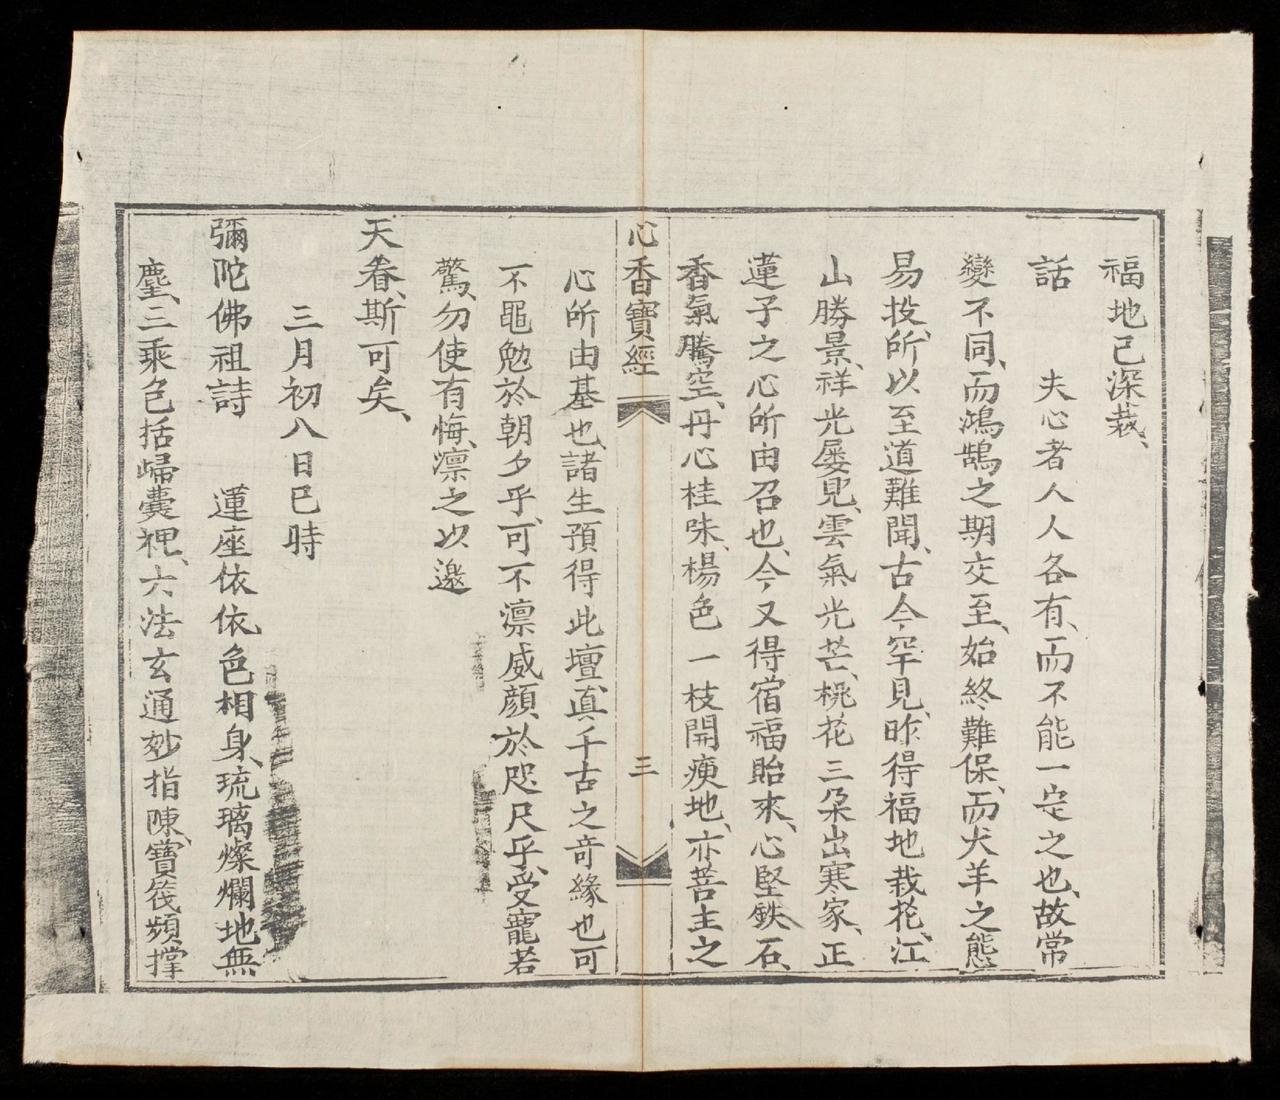 福地已深栽、
話　夫心者人人各有、而不能一定之也、故常
變不同、而鴻鵠之期交至、始終難保、而犬羊之態
易投、所以至道難聞、古今罕見、昨得福地栽花、江
山勝景、祥光屡見、雲氣光芒、桃花三朶出寒家、正
蓮子之心所由召也、今又得宿福貽來、心堅鉄石、
香氣騰空、丹心桂味、楊色一枝開瘐地、亦菩主之
心香寶經　三
心所由基也、諸生預得此壇、真千古之竒緣也可
不黽勉於朝夕乎、可不凛威顔於咫尺乎、受寵若
驚、勿使有悔、凛之以邀
天眷、斯可矣、
三月初八日巳時
彌陀佛祖詩　運座依依色相身、琉璃燦爛地無
塵、三乘色括歸囊裡、六法玄通妙指陳、寶筏頻撑